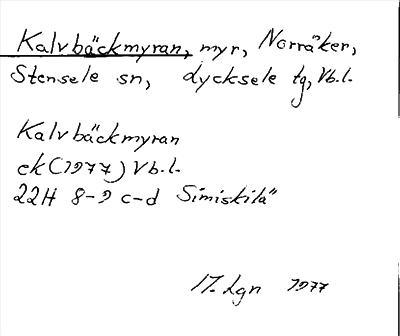 Kalvbäckmyran, myr, Norråker,
Stensele sn, Lycksele tg, Vb.l.
Kalvbäckmyran
ek (1977) Vb.l.
22H 8-9 c-d Simiskilä"
17. Lgn 1977